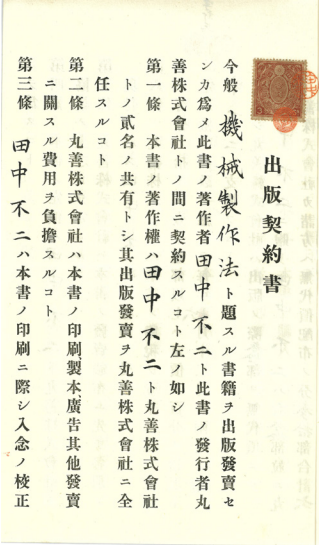 出版契約書
今般機械製作法ト題スル書籍ヲ出版發賣セ
ンカ爲メ此書ノ著作者田中不二ト此書ノ發行者丸
善株式會社トノ間ニ契約スルコト左ノ如シ
第一條 本書ノ著作權ハ田中不二ト丸善株式會社
トノ貳名ノ共有トシ其出版發賣ヲ丸善株式會社ニ全
任スルコト
第二條 丸善株式會社ハ本書ノ印刷、製本、廣告其他發賣
ニ關スル費用ヲ負擔スルコト
第三條 田中不二ハ本書ノ印刷ニ際シ入念ノ校正